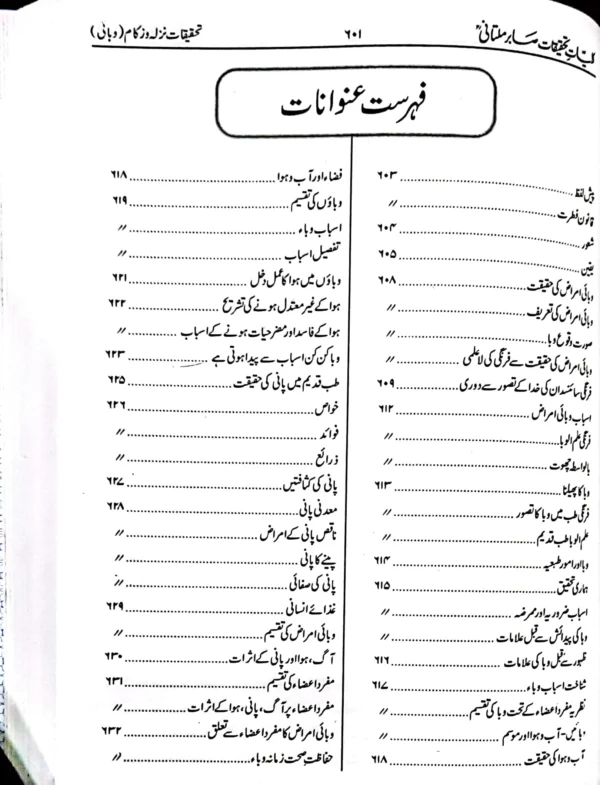 کلیات تحقیقات صابر ملتانیؒ ۶۰۱ تحقیقات نزلہ و زکام (وبائی)
فہرست عنوانات
پیش لفظ ۶۰۳
قانون فطرت 〃
شعور ۶۰۴
یقین ۶۰۵
وبائی امراض کی حقیقت ۶۰۸
وبائی امراض کی تعریف 〃
صورت وقوع وبا 〃
وبائی امراض کی حقیقت سے فرنگی کی لاعلمی 〃
فرنگی سائنسدان کی خدا کے تصور سے دوری ۶۰۹
اسباب وبائی امراض ۶۱۲
فرنگی علم الوبا 〃
بالواسطہ چھوت 〃
وبا کا پھیلانا ۶۱۳
فرنگی طب میں وبا کا تصور 〃
علم الوبا طب قدیم 〃
وبا اور امور طبعیہ ۶۱۴
ہماری تحقیق ۶۱۵
اسباب ضروریہ اور ممرضہ 〃
وبا کی پیدائش سے قبل علامات 〃
ظہور سے قبل وبا کی علامات ۶۱۶
شناخت اسباب وباء ۶۱۷
نظریہ مفرد اعضاء کے تحت وبا کی تقسیم 〃
وبائیں۔ آب و ہوا اور موسم 〃
آب و ہوا کی حقیقت ۶۱۸
فضاء اور آب و ہوا ۶۱۸
وباؤں کی تقسیم ۶۱۹
اسباب وباء 〃
تفصیل اسباب 〃
وباؤں میں ہوا کا عمل دخل ۶۲۱
ہوا کے غیر معتدل ہونے کی تشریح ۶۲۲
ہوا کے فاسد اور مضر حیات ہونے کے اسباب 〃
وبا کن کن اسباب سے پیدا ہوتی ہے ۶۲۳
طب قدیم میں پانی کی حقیقت ۶۲۵
خواص ۶۲۶
فوائد 〃
ذرائع 〃
پانی کی کثافتیں ۶۲۷
معدنی پانی ۶۲۸
ناقص پانی کے امراض 〃
پینے کا پانی 〃
پانی کی صفائی 〃
غذائے انسانی ۶۲۹
وبائی امراض کی تقسیم 〃
آگ، ہوا اور پانی کے اثرات ۶۳۰
مفرد اعضاء کی تقسیم ۶۳۱
مفرد اعضاء پر آگ، پانی، ہوا کے اثرات 〃
وبائی امراض کا مفرد اعضاء سے تعلق ۶۳۲
حفاظتِ صحت زمانہ وباء 〃